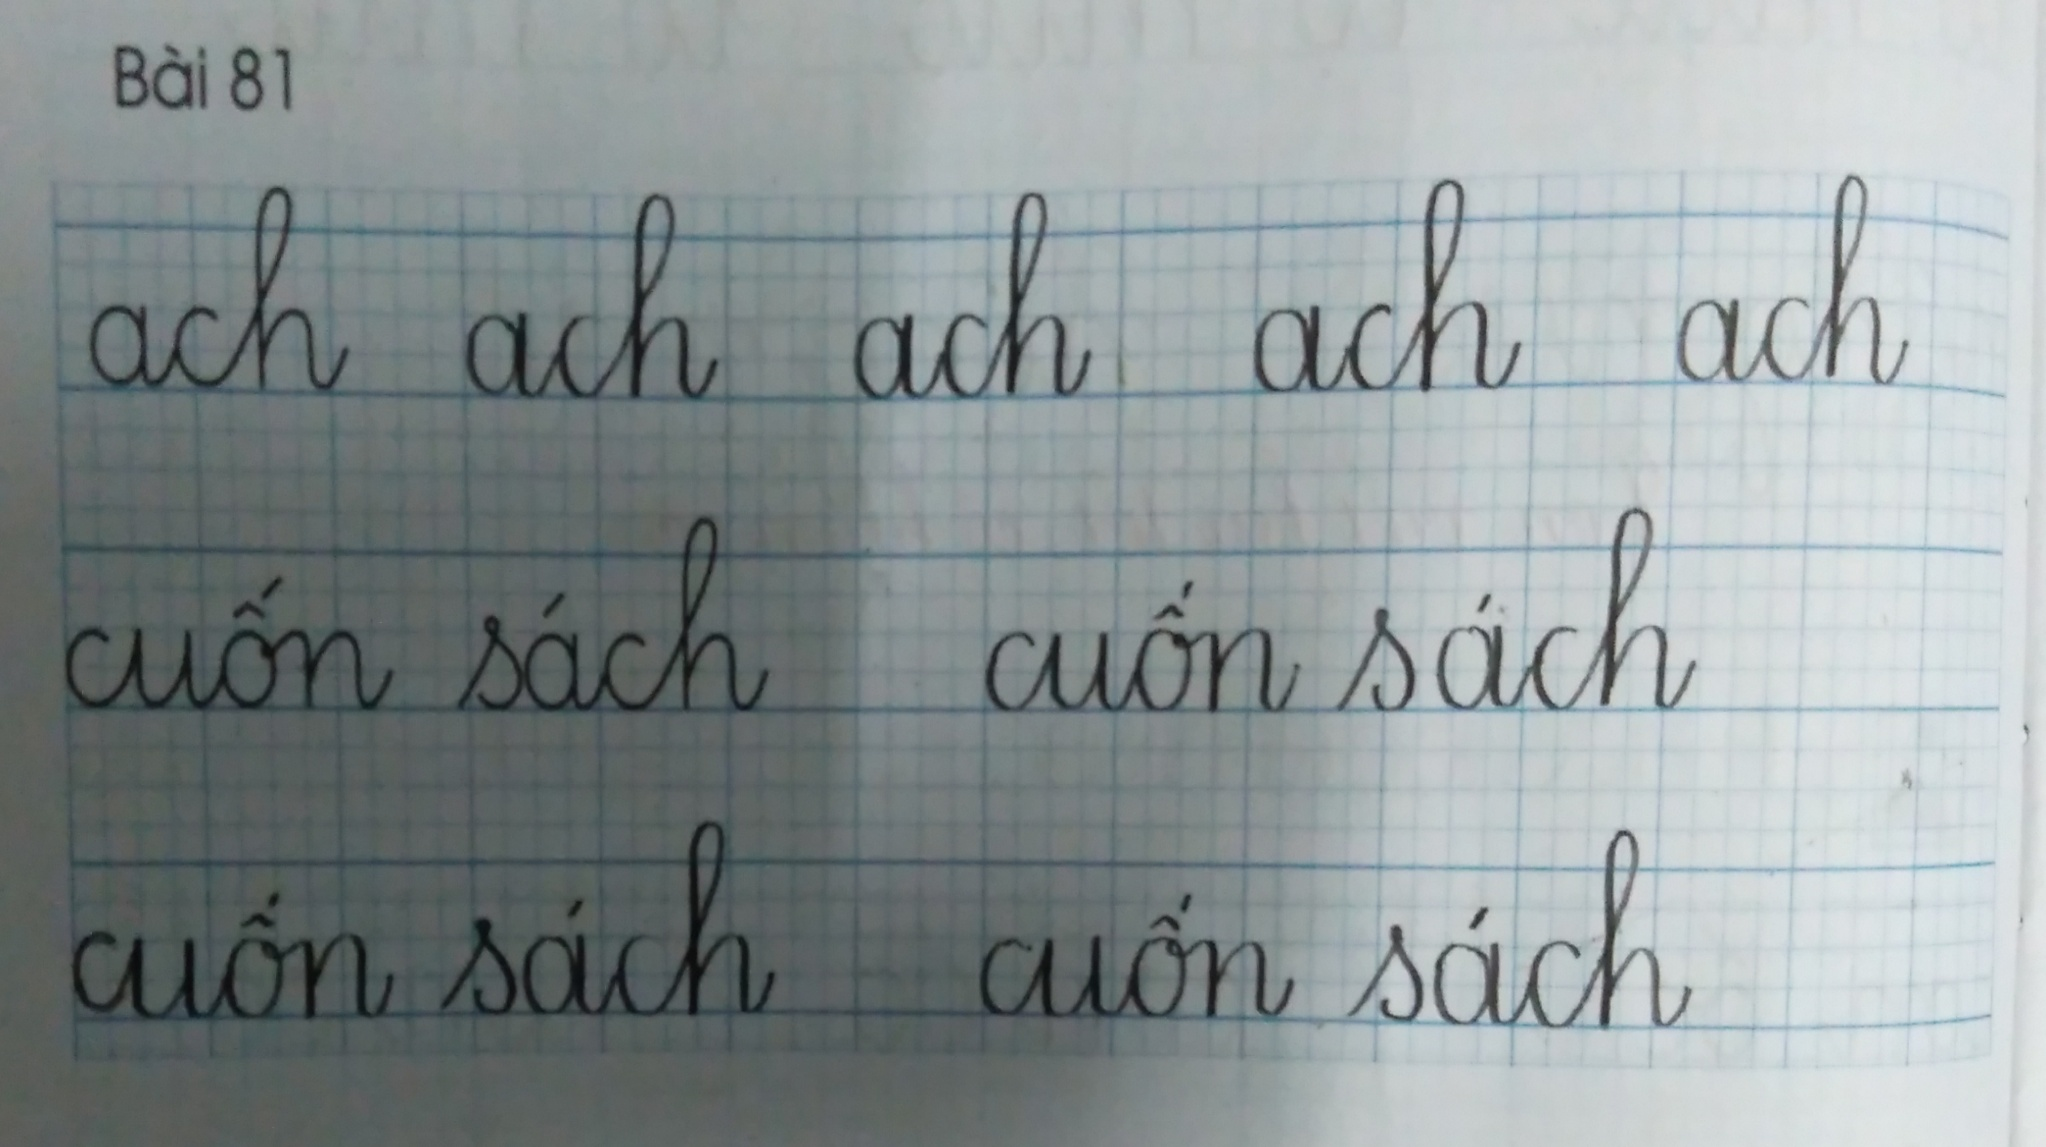 Bài 81
ach ach ach ach ach
cuốn sách cuốn sách
cuốn sách cuốn sách